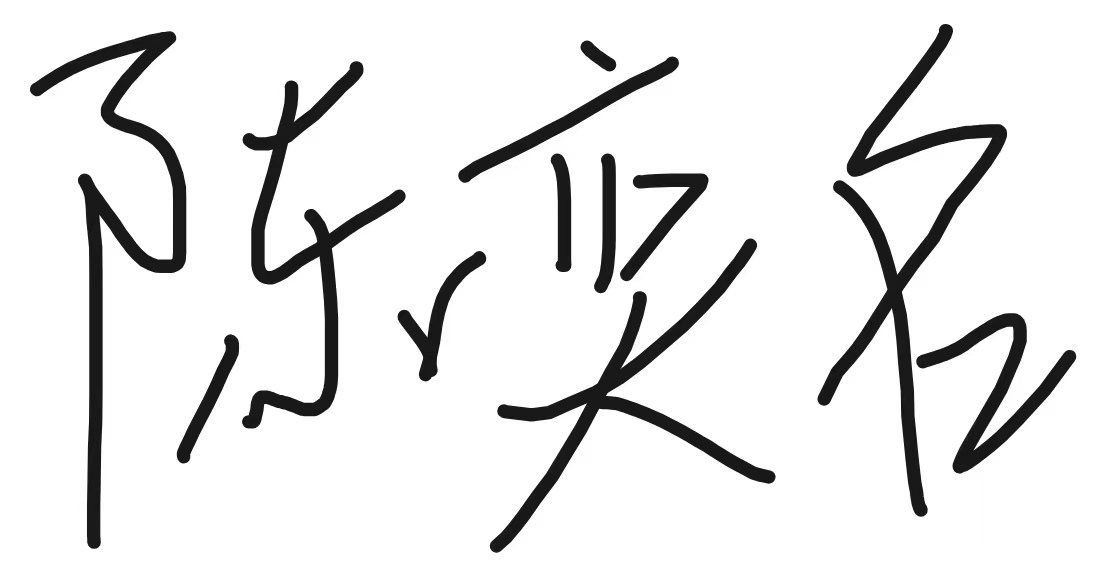 陈奕名